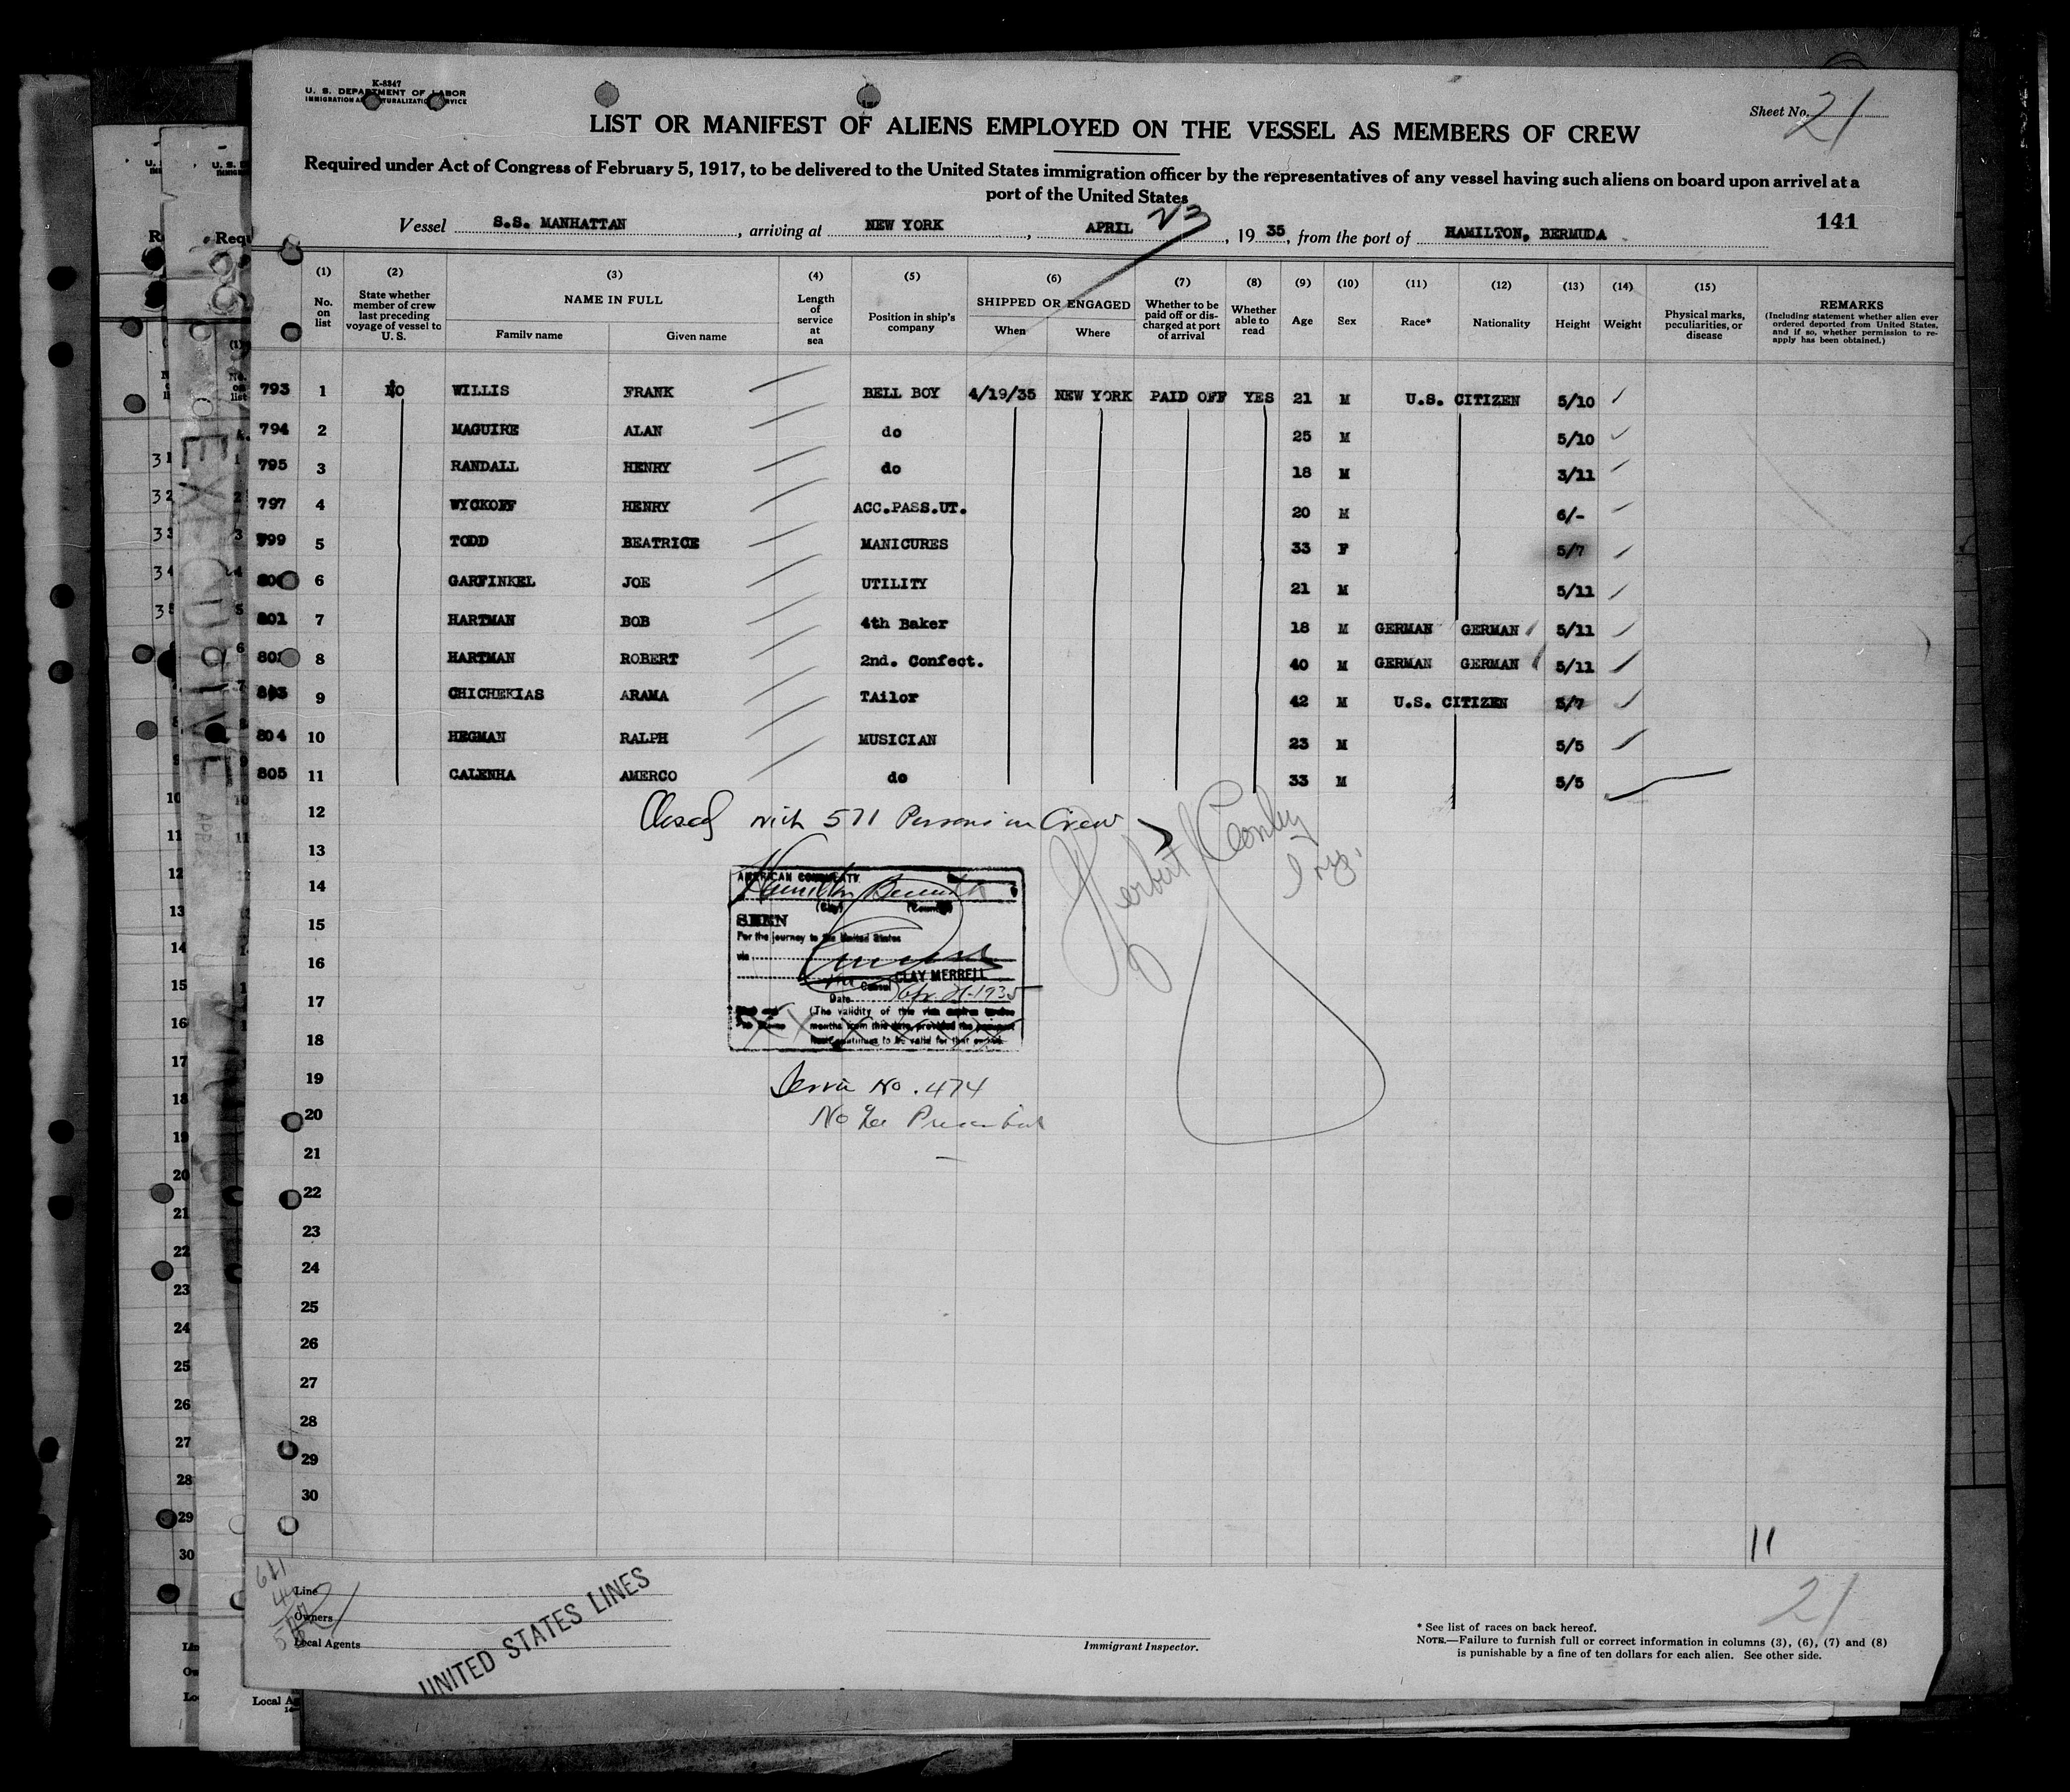 K-8347
U. S. DEPARTMENT OF LABOR
IMMIGRATION AND NATURALIZATION SERVICE
Sheet No. 21
LIST OR MANIFEST OF ALIENS EMPLOYED ON THE VESSEL AS MEMBERS OF CREW
Required under Act of Congress of February 5, 1917, to be delivered to the United States immigration officer by the representatives of any vessel having such aliens on board upon arrival at a
port of the United States
Vessel S.S. MANHATTAN, arriving at NEW YORK, APRIL 23, 1935, from the port of HAMILTON, BERMUDA 141
(1) (2) (3) (4) (5) (6) (7) (8) (9) (10) (11) (12) (13) (14) (15)
No. on list
State whether member of crew last preceding voyage of vessel to U. S.
NAME IN FULL
Family name Given name
Length of service at sea
Position in ship's company
SHIPPED OR ENGAGED
When Where
Whether to be paid off or discharged at port of arrival
Whether able to read
Age Sex Race* Nationality Height Weight
Physical marks, peculiarities, or disease
REMARKS
(Including statement whether alien ever ordered deported from United States, and if so, whether permission to reapply has been obtained.)
793 1 NO WILLIS FRANK BELL BOY 4/19/35 NEW YORK PAID OFF YES 21 M U.S. CITIZEN 5/10
794 2 MAGUIRE ALAN do 25 M 5/10
795 3 RANDALL HENRY do 18 M 3/11
797 4 WYCKOFF HENRY ACC.PASS.UT. 20 M 6/-
799 5 TODD BEATRICE MANICURES 33 F 5/7
6 GARFINKEL JOE UTILITY 21 M 5/11
801 7 HARTMAN BOB 4th Baker 18 M GERMAN GERMAN 5/11
802 8 HARTMAN ROBERT 2nd. Confect. 40 M GERMAN GERMAN 5/11
803 9 CHICHEKIAS ARAMA TAilor 42 M U.S. CITIZEN 5/7
804 10 HEGMAN RALPH MUSICIAN 23 M 5/5
805 11 CALENHA AMERCO do 33 M 5/5
12
Closed with 571 Persons in Crew
Herbert Conley
13
14
15
16
17
18
19
20
21
22
23
24
25
26
27
28
29
30
AMERICAN CONSULATE
Hamilton Bermuda
(City) (Country)
SEEN
For the journey to the United States
via
CLAY MERRELL
Vice Consul
Date Apr. 21-1935
(The validity of this visa expires twelve
months from this date, provided the passport
continues to be valid for that period.
Service No. 474
No Fee Prescribed
11
21
Line
Owners
Local Agents
UNITED STATES LINES
Immigrant Inspector.
* See list of races on back hereof.
NOTE.—Failure to furnish full or correct information in columns (3), (6), (7) and (8)
is punishable by a fine of ten dollars for each alien. See other side.